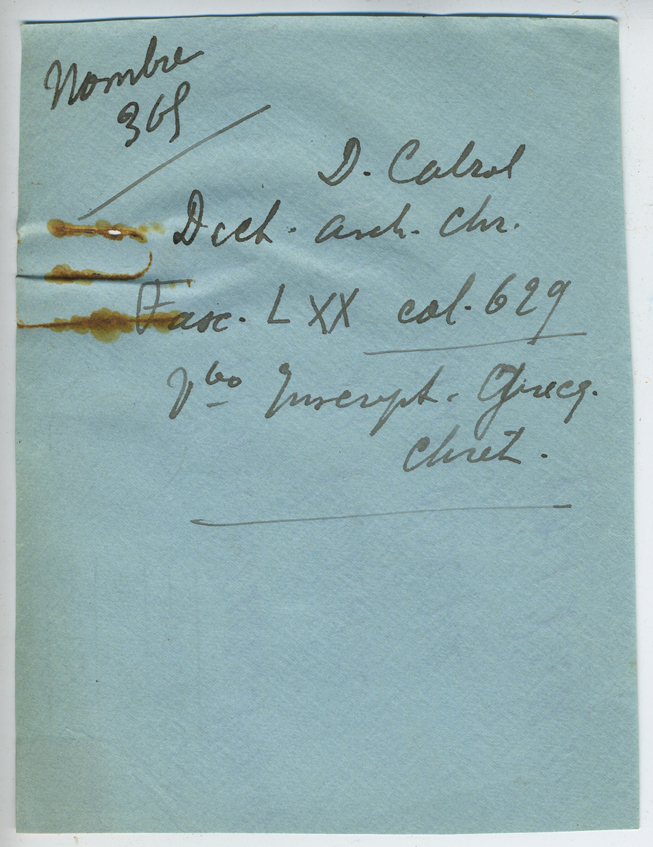 Nombre
365
D. Cabrol
Dict. arch. chr.
Fasc. LXX col. 629
Vbo Inscript. Grecq.
Chrét.